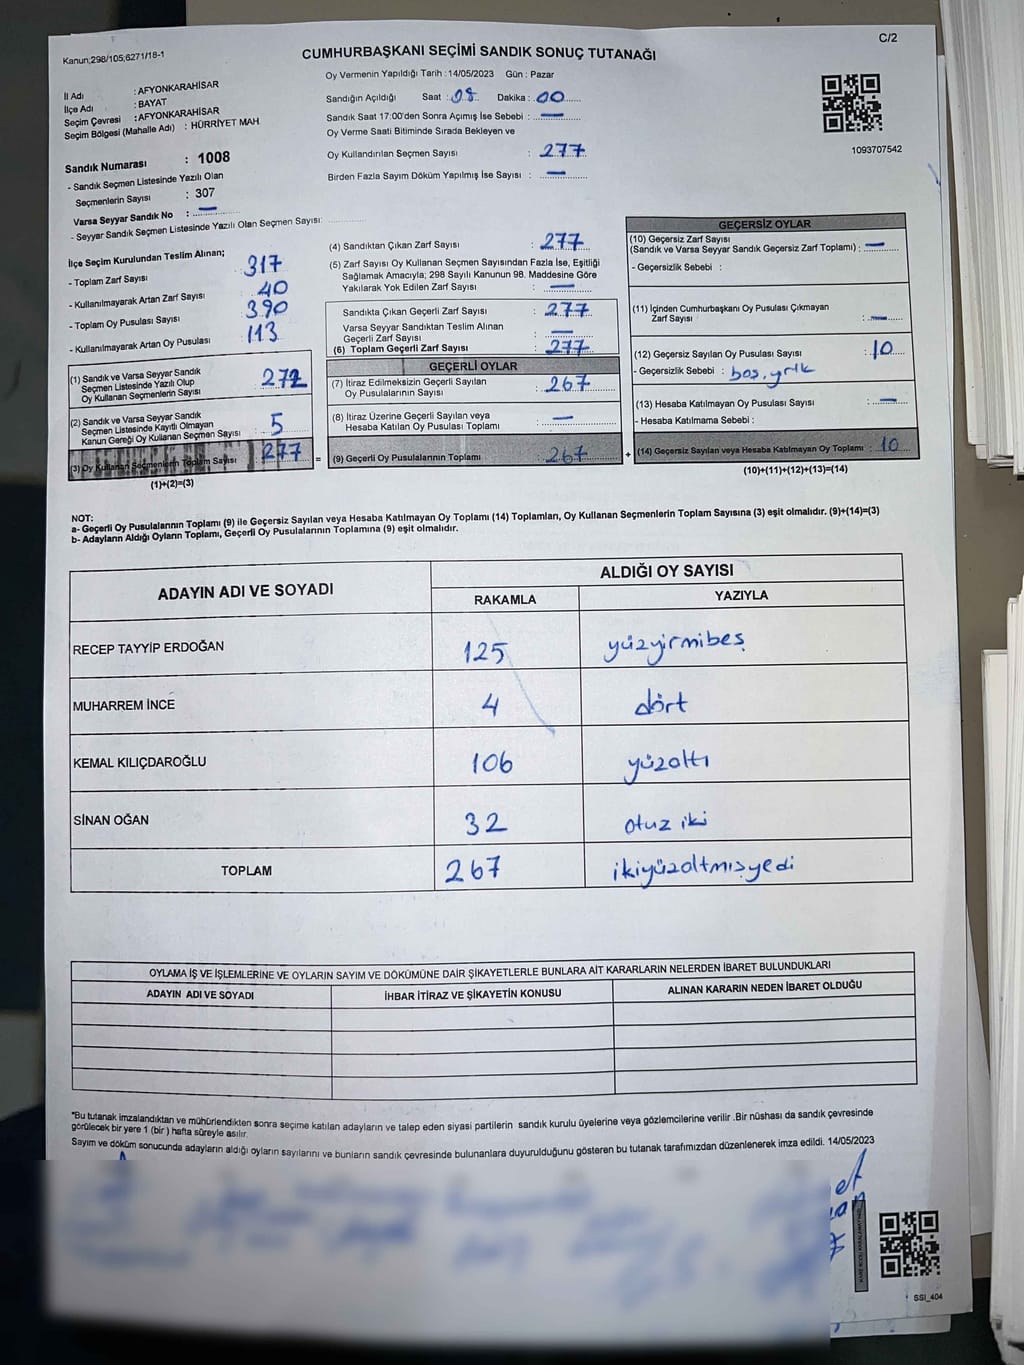 C/2
Kanun;298/105;6271/18-1
CUMHURBAŞKANI SEÇİMİ SANDIK SONUÇ TUTANAĞI
Oy Vermenin Yapıldığı Tarih : 14/05/2023 Gün : Pazar
İl Adı : AFYONKARAHİSAR
İlçe Adı : BAYAT
Seçim Çevresi : AFYONKARAHİSAR
Seçim Bölgesi (Mahalle Adı) : HÜRRİYET MAH.
Sandığın Açıldığı Saat : 08 Dakika : 00
Sandık Saat 17:00'den Sonra Açımış İse Sebebi : —
Oy Verme Saati Bitiminde Sırada Bekleyen ve
Oy Kullandırılan Seçmen Sayısı : 277
Birden Fazla Sayım Döküm Yapılmış İse Sayısı : —
1093707542
Sandık Numarası : 1008
- Sandık Seçmen Listesinde Yazılı Olan
Seçmenlerin Sayısı : 307
Varsa Seyyar Sandık No : —
- Seyyar Sandık Seçmen Listesinde Yazılı Olan Seçmen Sayısı:
İlçe Seçim Kurulundan Teslim Alınan;
- Toplam Zarf Sayısı 317
- Kullanılmayarak Artan Zarf Sayısı 40
- Toplam Oy Pusulası Sayısı 390
- Kullanılmayarak Artan Oy Pusulası 113
(1) Sandık ve Varsa Seyyar Sandık
Seçmen Listesinde Yazılı Olup
Oy Kullanan Seçmenlerin Sayısı 272
(2) Sandık ve Varsa Seyyar Sandık
Seçmen Listesinde Kayıtlı Olmayan
Kanun Gereği Oy Kullanan Seçmen Sayısı 5
(3) Oy Kullanan Seçmenlerin Toplam Sayısı 277 =
(1)+(2)=(3)
(4) Sandıktan Çıkan Zarf Sayısı : 277
(5) Zarf Sayısı Oy Kullanan Seçmen Sayısından Fazla İse, Eşitliği
Sağlamak Amacıyla; 298 Sayılı Kanunun 98. Maddesine Göre
Yakılarak Yok Edilen Zarf Sayısı : —
Sandıkta Çıkan Geçerli Zarf Sayısı : 277
Varsa Seyyar Sandıktan Teslim Alınan
Geçerli Zarf Sayısı : —
(6) Toplam Geçerli Zarf Sayısı : 277
GEÇERLİ OYLAR
(7) İtiraz Edilmeksizin Geçerli Sayılan
Oy Pusulalarının Sayısı : 267
(8) İtiraz Üzerine Geçerli Sayılan veya
Hesaba Katılan Oy Pusulası Toplamı : —
(9) Geçerli Oy Pusulalarının Toplamı : 267 +
GEÇERSİZ OYLAR
(10) Geçersiz Zarf Sayısı
(Sandık ve Varsa Seyyar Sandık Geçersiz Zarf Toplamı) : —
- Geçersizlik Sebebi :
(11) İçinden Cumhurbaşkanı Oy Pusulası Çıkmayan
Zarf Sayısı : —
(12) Geçersiz Sayılan Oy Pusulası Sayısı : 10
- Geçersizlik Sebebi : boş, yrtk
(13) Hesaba Katılmayan Oy Pusulası Sayısı : —
- Hesaba Katılmama Sebebi :
(14) Geçersiz Sayılan veya Hesaba Katılmayan Oy Toplamı : 10
(10)+(11)+(12)+(13)=(14)
NOT:
a- Geçerli Oy Pusulalarının Toplamı (9) ile Geçersiz Sayılan veya Hesaba Katılmayan Oy Toplamı (14) Toplamları, Oy Kullanan Seçmenlerin Toplam Sayısına (3) eşit olmalıdır. (9)+(14)=(3)
b- Adayların Aldığı Oyların Toplamı, Geçerli Oy Pusulalarının Toplamına (9) eşit olmalıdır.
ADAYIN ADI VE SOYADI ALDIĞI OY SAYISI
RAKAMLA YAZIYLA
RECEP TAYYİP ERDOĞAN 125 yüzyirmibeş
MUHARREM İNCE 4 dört
KEMAL KILIÇDAROĞLU 106 yüzaltı
SİNAN OĞAN 32 otuz iki
TOPLAM 267 ikiyüzaltmışyedi
OYLAMA İŞ VE İŞLEMLERİNE VE OYLARIN SAYIM VE DÖKÜMÜNE DAİR ŞİKAYETLERLE BUNLARA AİT KARARLARIN NELERDEN İBARET BULUNDUKLARI
ADAYIN ADI VE SOYADI İHBAR İTİRAZ VE ŞİKAYETİN KONUSU ALINAN KARARIN NEDEN İBARET OLDUĞU
"Bu tutanak imzalandıktan ve mühürlendikten sonra seçime katılan adayların ve talep eden siyasi partilerin sandık kurulu üyelerine veya gözlemcilerine verilir .Bir nüshası da sandık çevresinde
görülecek bir yere 1 (bir ) hafta süreyle asılır.
Sayım ve döküm sonucunda adayların aldığı oyların sayılarını ve bunların sandık çevresinde bulunanlara duyurulduğunu gösteren bu tutanak tarafımızdan düzenlenerek imza edildi. 14/05/2023
SSI_404